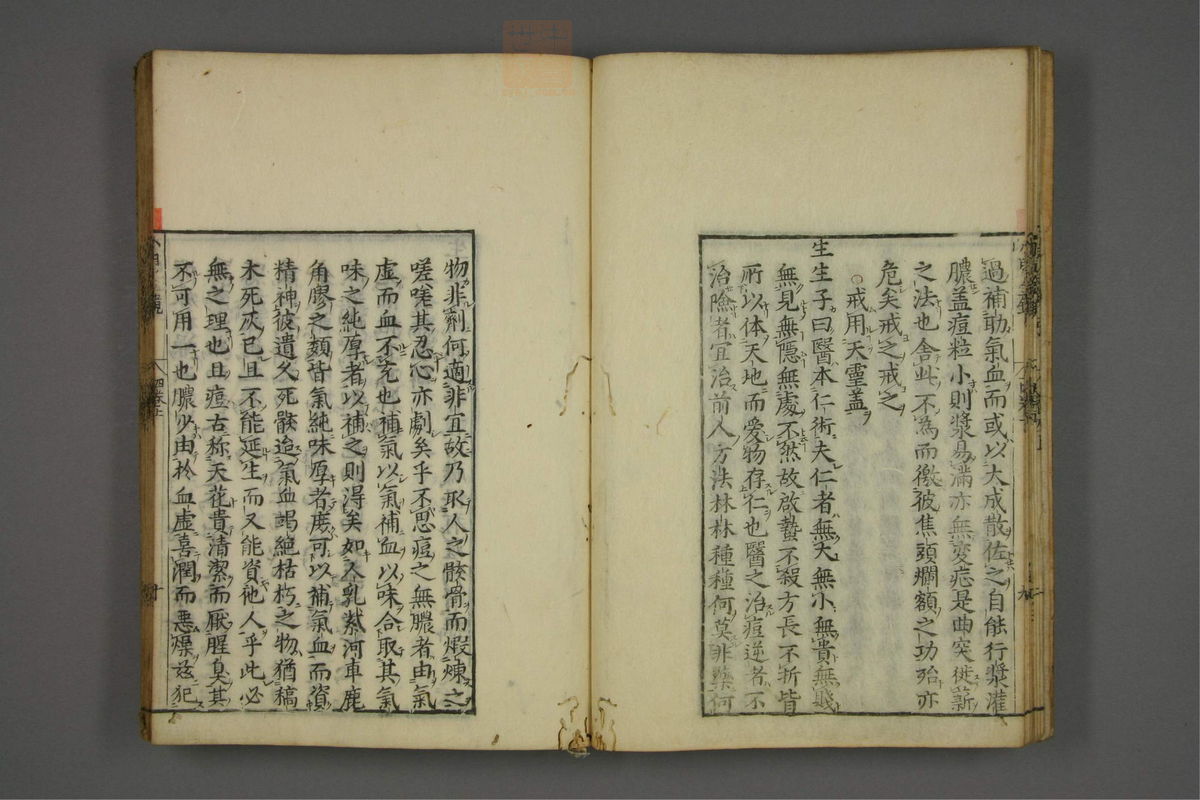 過補助氣血而或以大成散佐之自能行漿灌
膿盖痘粒小則漿易滿亦無変症是曲突徙薪
之法也舎此不為而徼彼焦頭爛額之功殆亦
危矣戒之戒之
○戒用天靈盖
生生子曰醫本仁術夫仁者無大無小無貴無賎
無見無隱無處不然故啟蟄不殺方長不折皆
所以体天地而愛物存仁也醫之治痘逆者不
治險者宜治前人方法林林種種何莫非藥何
物非劑何適非宜故乃取人之骸骨而煅煉之
嗟嗟其忍心亦劇矣乎不思痘之無膿者由氣
虚而血不充也補氣以氣補血以味合取其氣
味之純厚者以補之則得矣如人乳紫河車鹿
角膠之類皆氣純味厚者庶可以補氣血而資
精神彼遺久死骸追氣血竭絶枯朽之物猶稿
木死灰已且不能延生而又能資他人乎此必
無之理也且痘古称天花貴清潔而厭腥臭其
不可用一也膿少由於血虚喜潤而悪燥玆犯